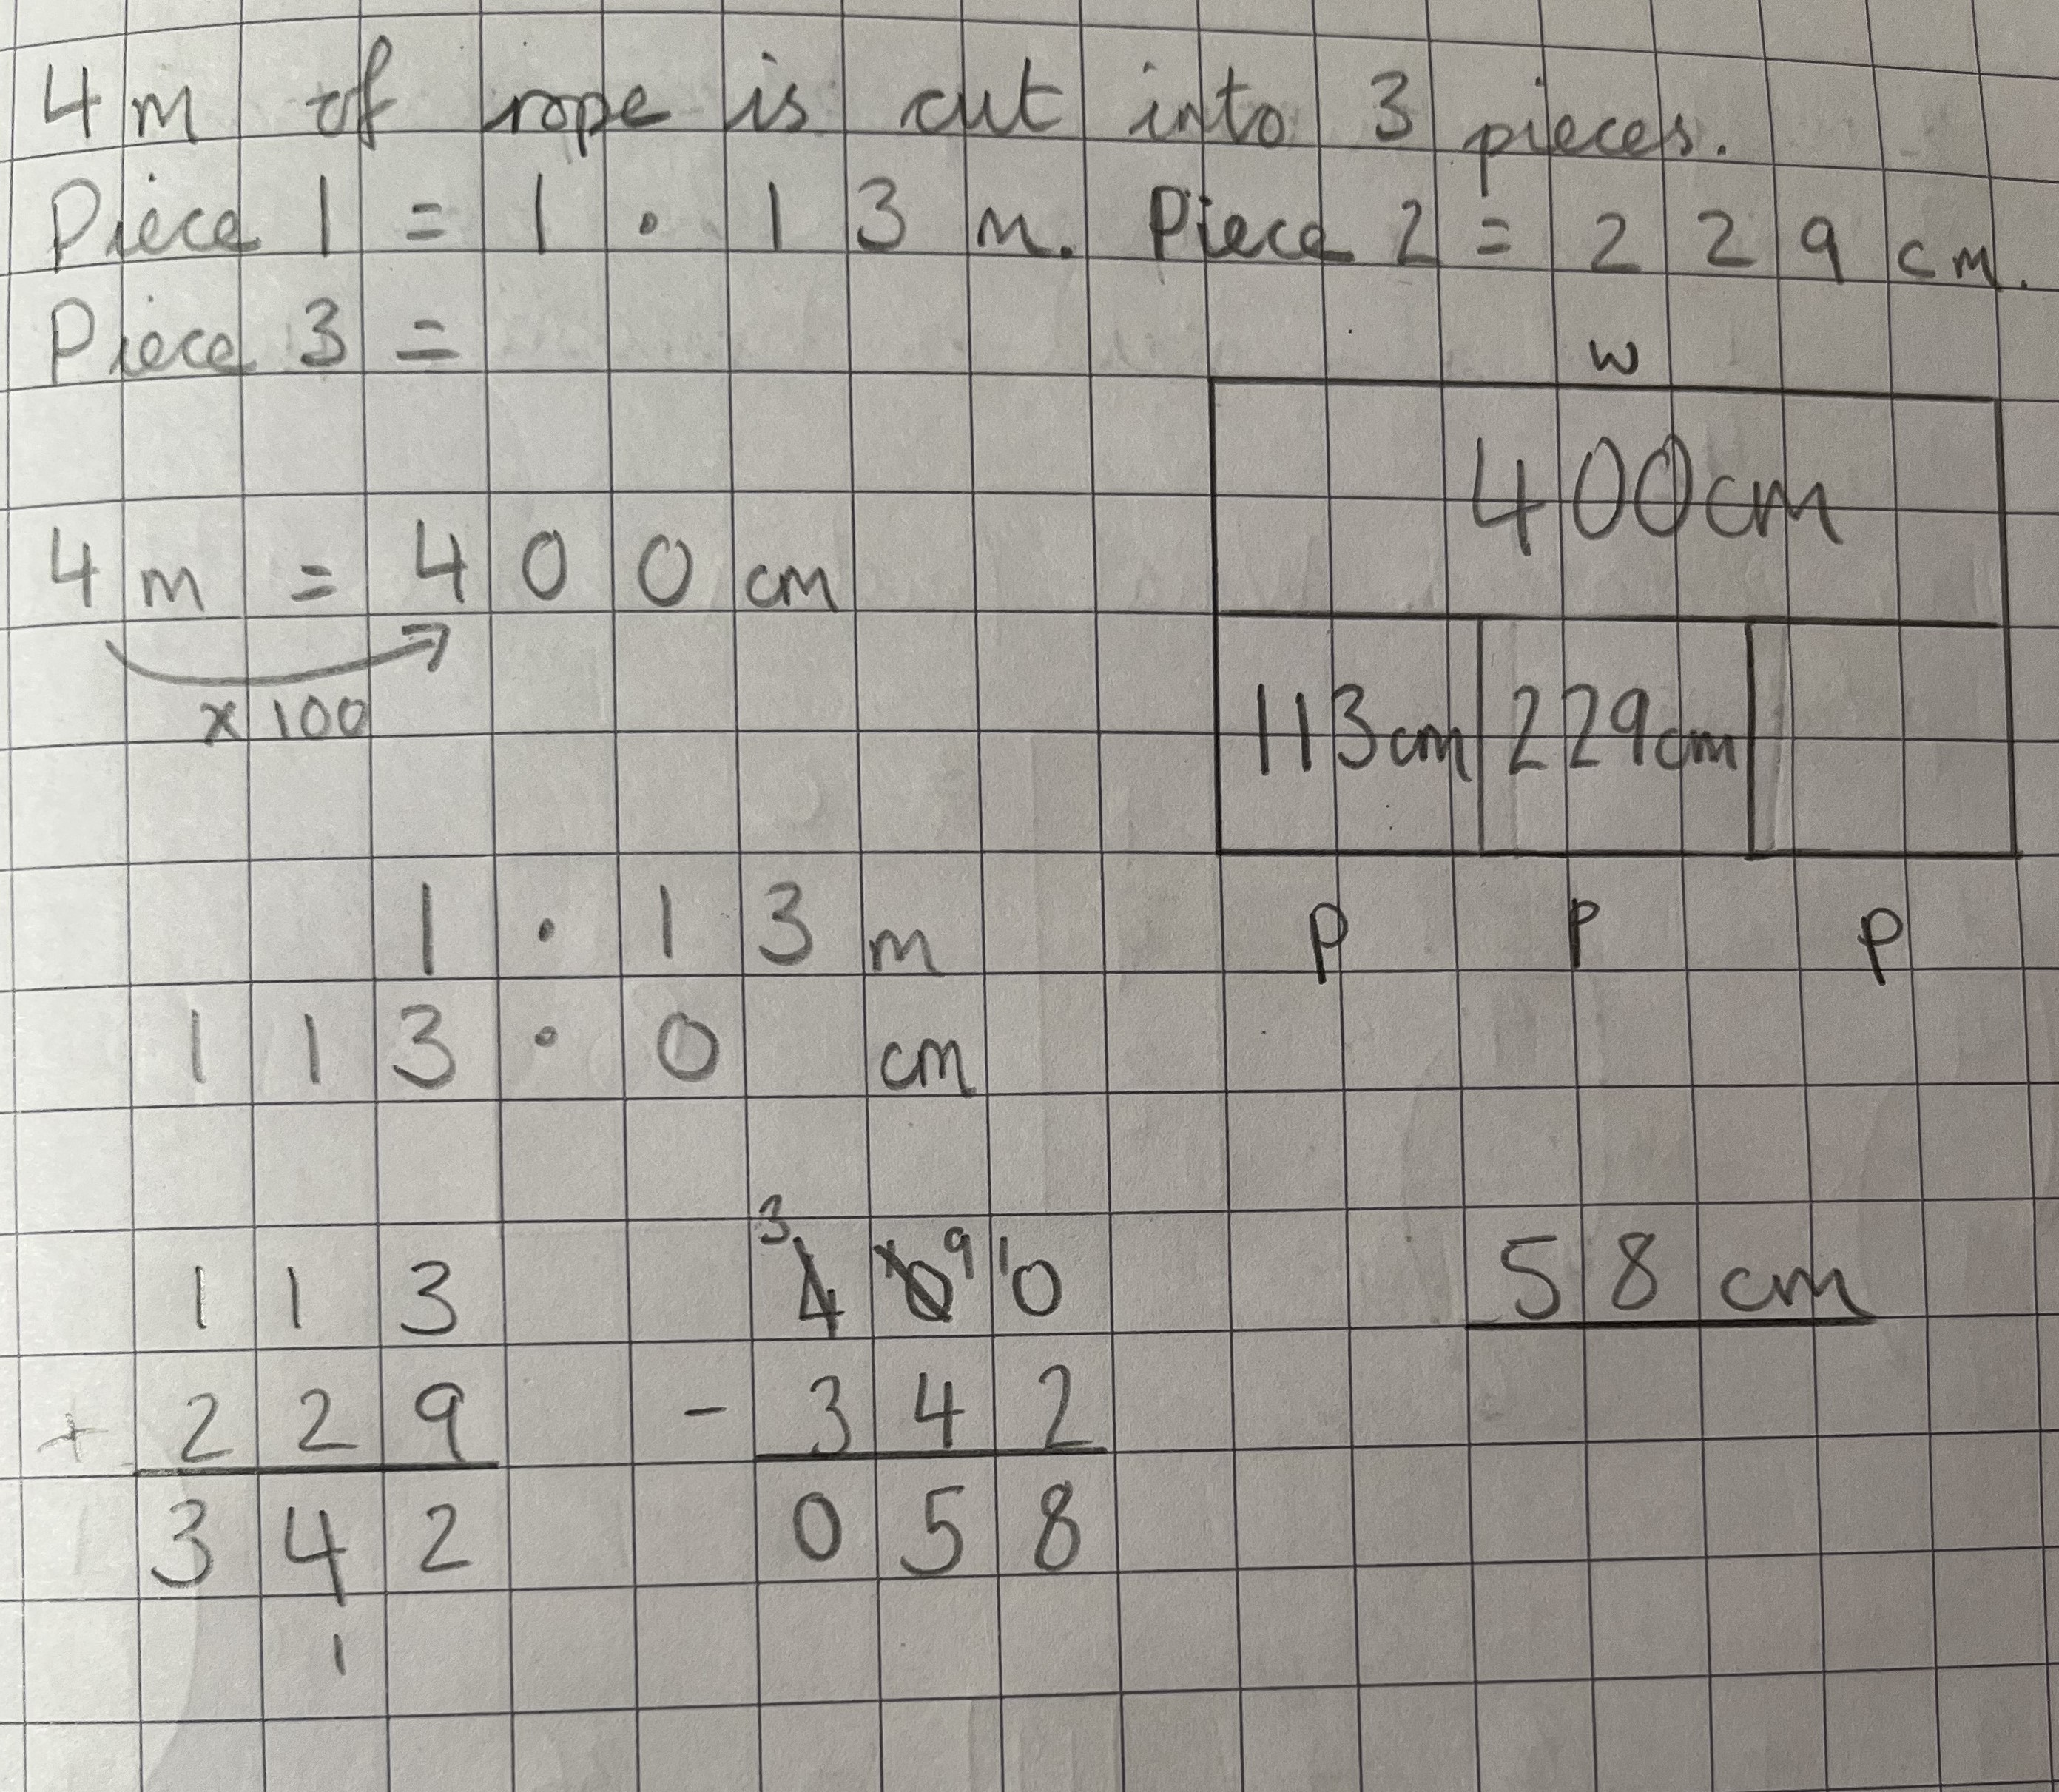 4 m of rope is cut into 3 pieces.
Piece 1 = 1 . 1 3 m. Piece 2 = 2 2 9 cm.
Piece 3 =
w
400cm
113cm 229cm
p p p
4 m = 4 0 0 cm
x 100
1 . 1 3 m
1 1 3 . 0 cm
1 1 3
+ 2 2 9
3 4 2
1
3 9 1
4 0 0
- 3 4 2
0 5 8
5 8 cm